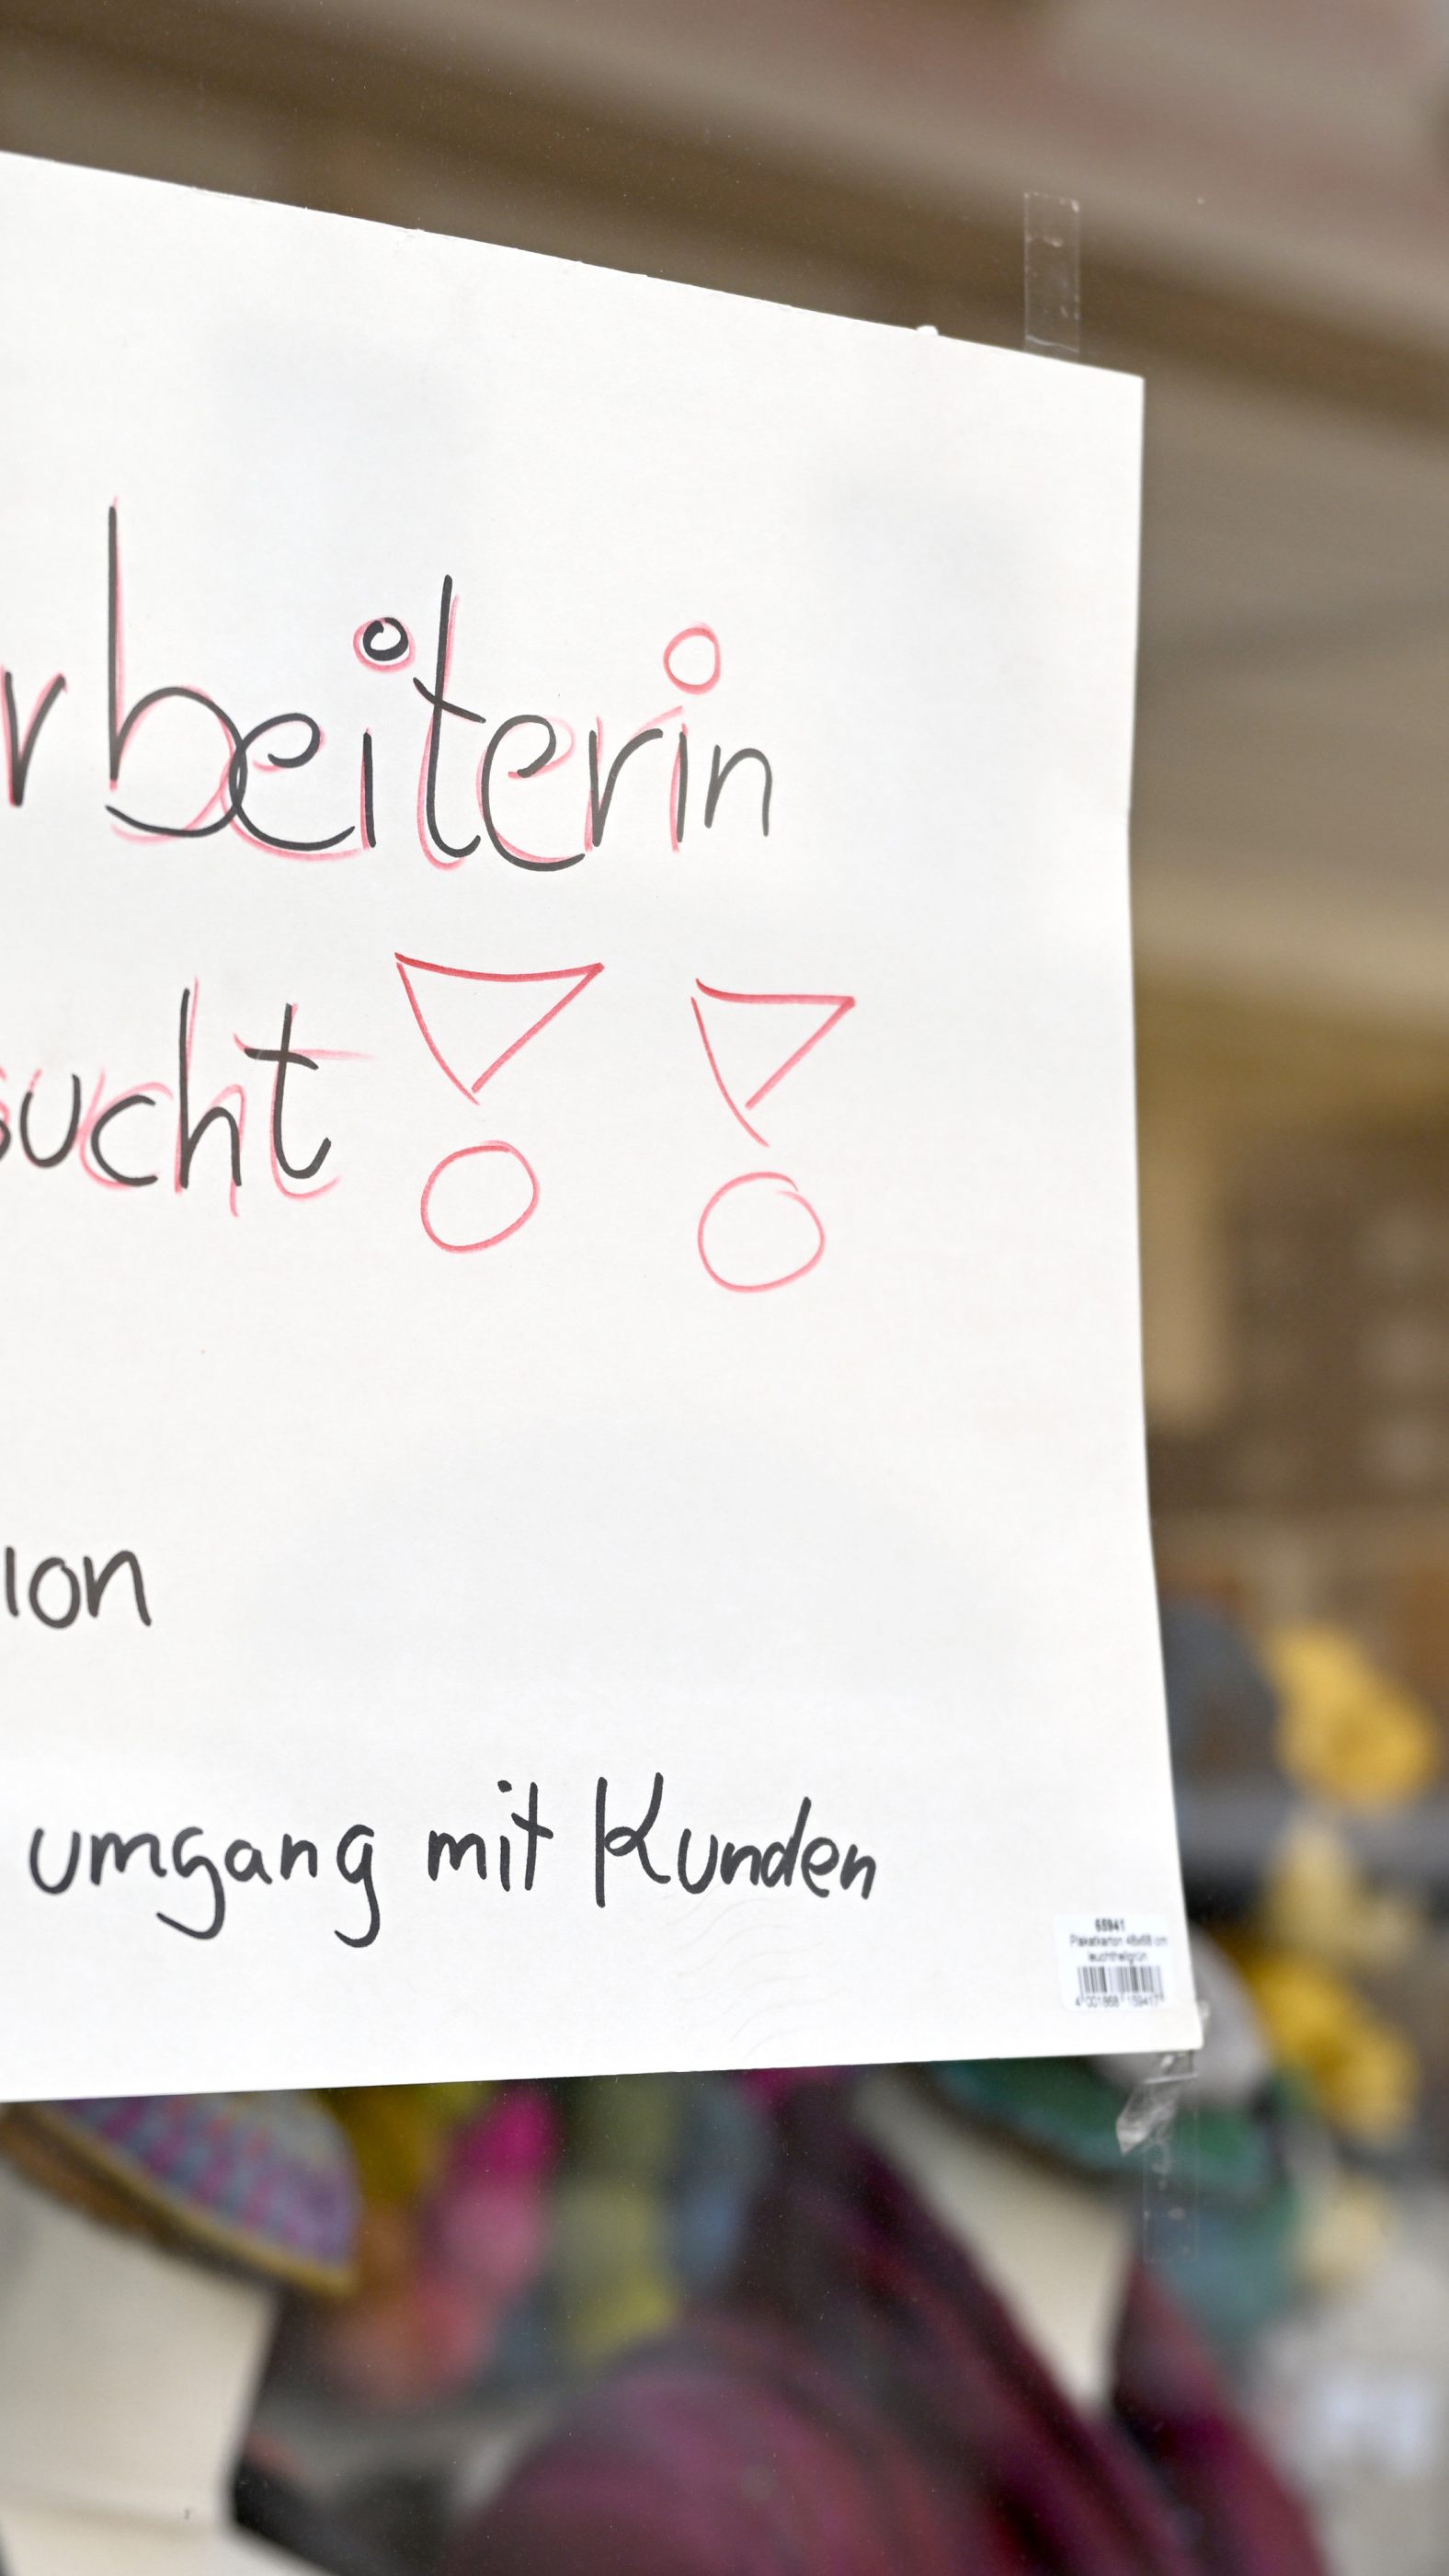 rbeiterin
sucht !!
ion
umgang mit Kunden
65941
Plakatkarton 48x68 cm
leuchthellgrün